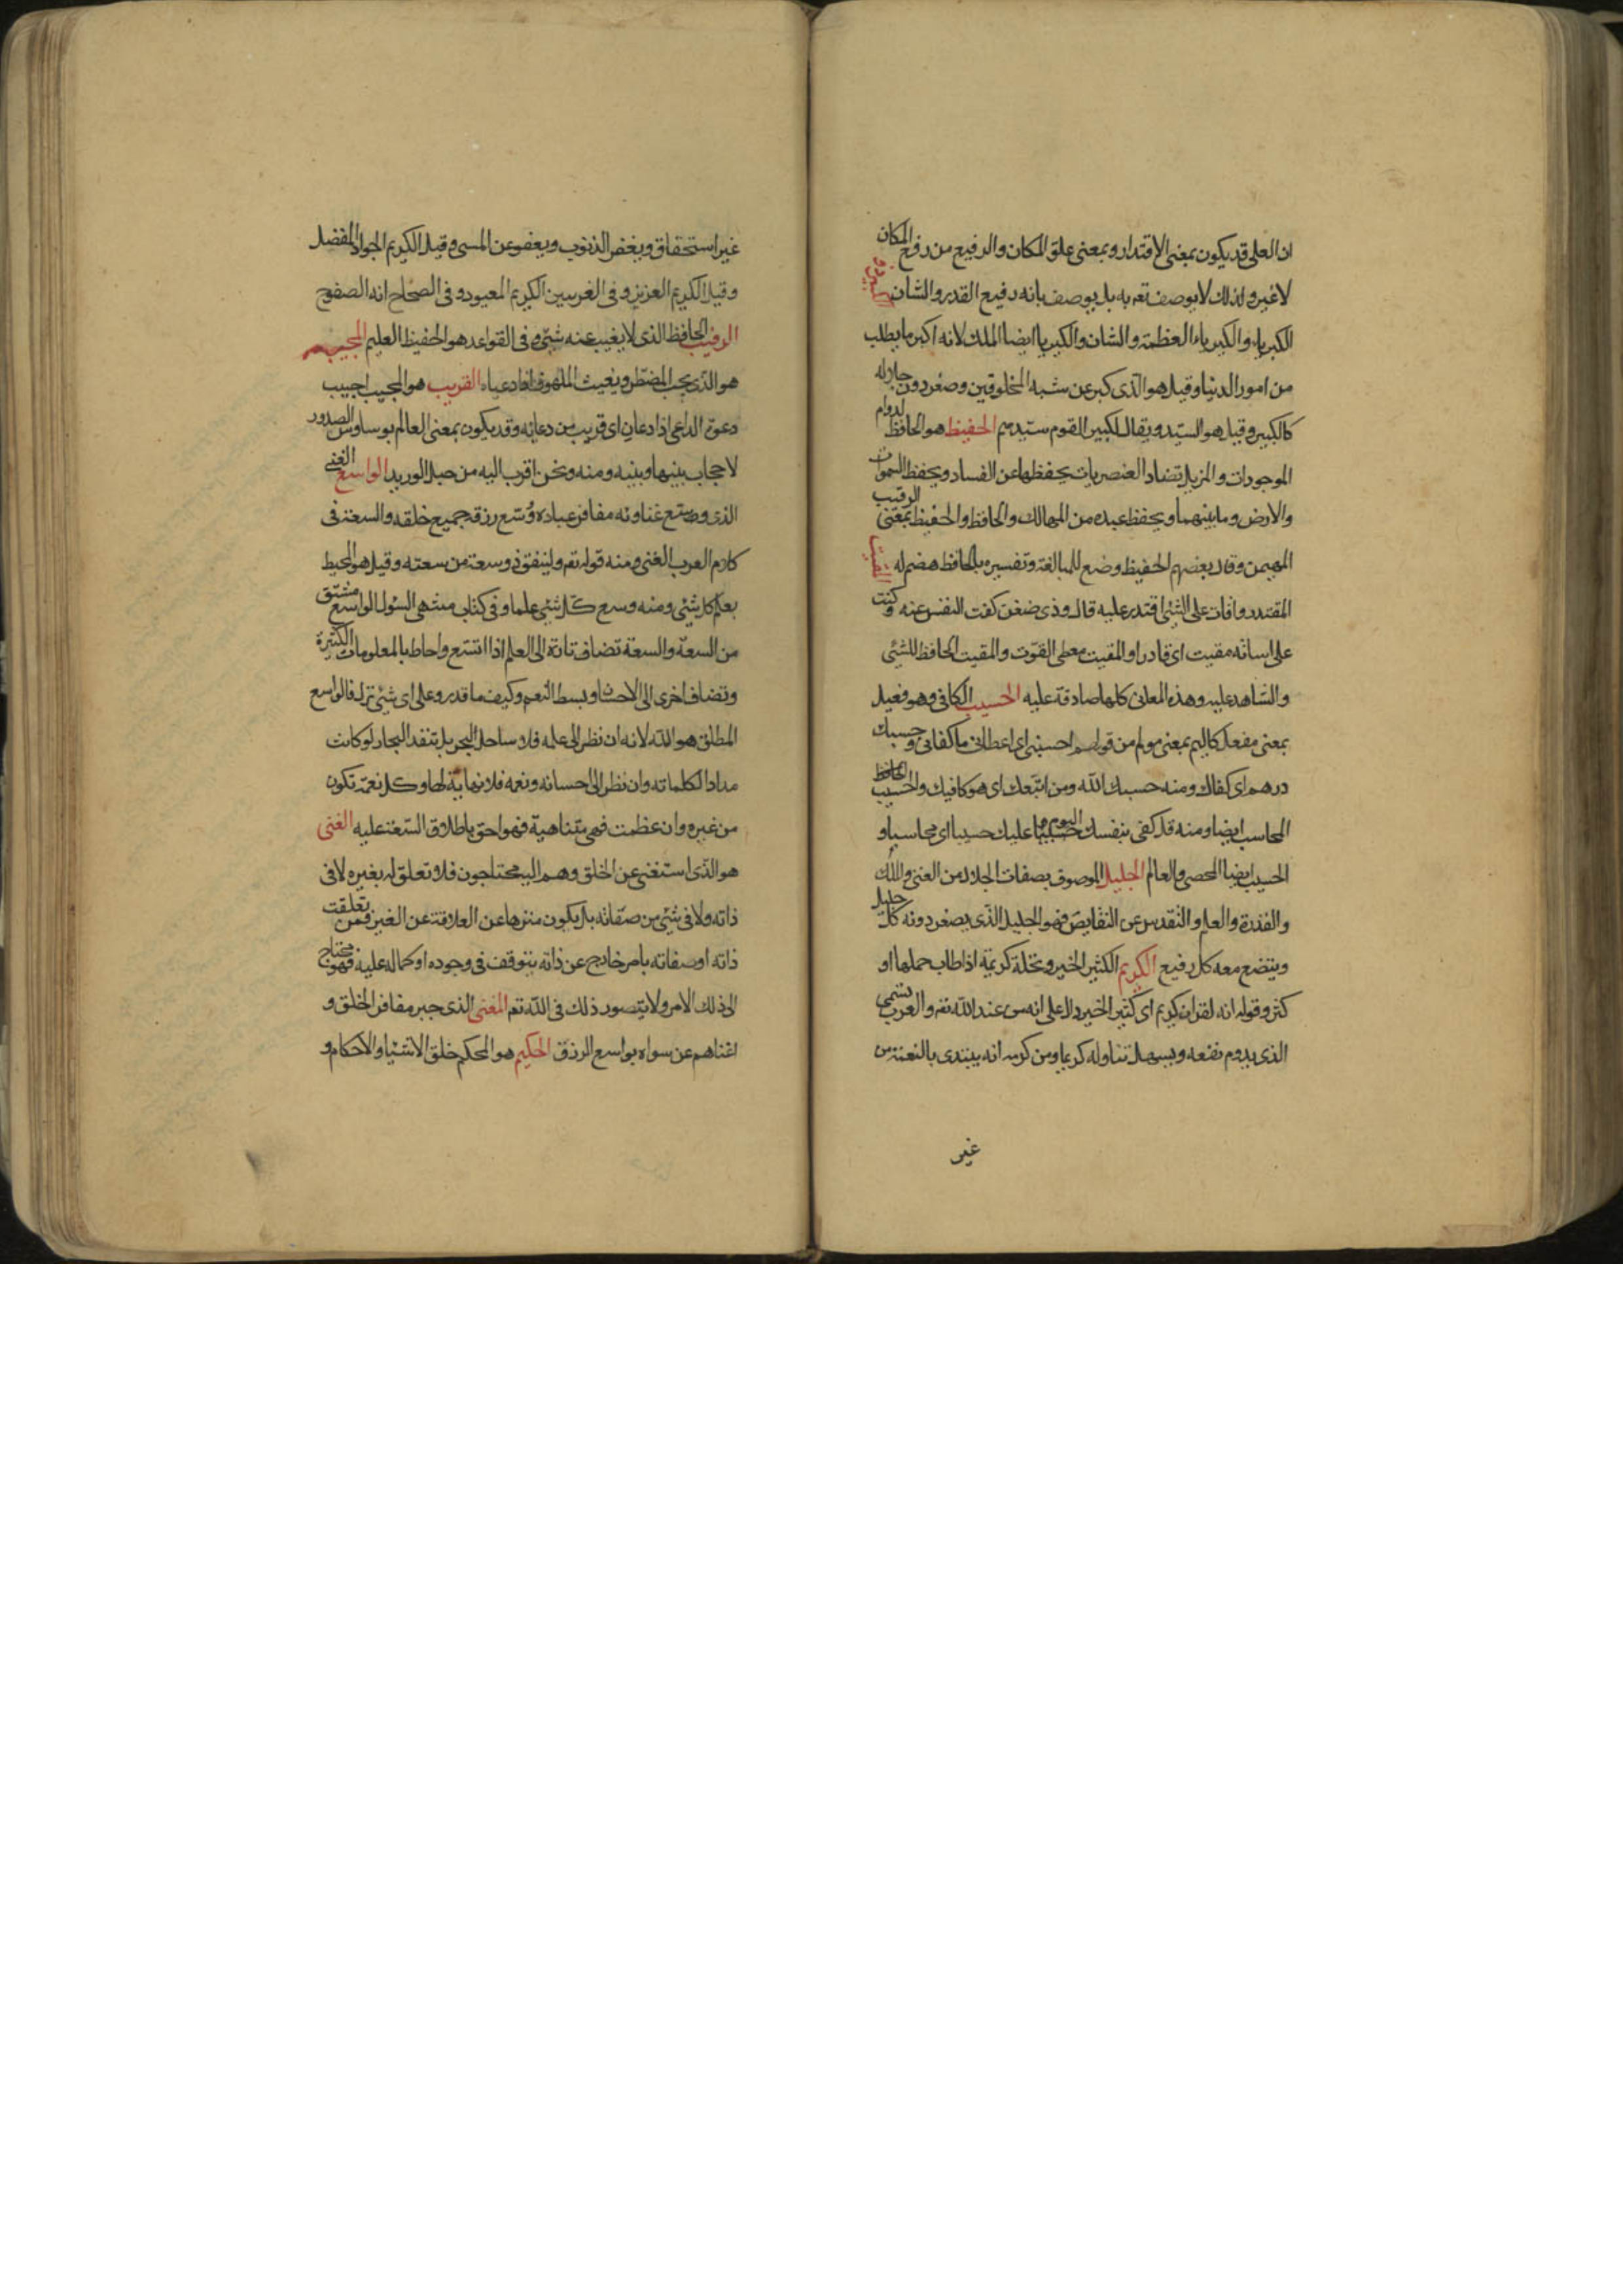 ان العلى قد يكون بمعنى الاقتدار و بمعنى علو المكان والرفيع من رفع المكان
لاغير ولذلك لا يوصف تعه به بل يوصف بانه رفيع القدر والشان الكبير ذو
الكبرياء والكبرياء العظمة والشان والكبريا ايضا الملك لانه اكبر ما يطلب
من امور الدنيا وقيل هو الذى كبر عن شبه المخلوقين وصغر دون جلاله
كل كبير وقيل هو السيد ويقال لكبير القوم سيدهم الحفيظ هو الحافظ لدوام
الموجودات والمزيل تضاد العنصريات بحفظها عن الفساد ويحفظ السموات
والارض وما بينهما ويحفظ عبده من المهالك والحافظ والحفيظ بمعنى الرقيب
المهيمن وقال بعضهم الحفيظ وضع للمبالغة وتفسيره بالحافظ هضم له المقيت
المقتدر واقات على الشئ اقتدر عليه قال وذى ضغن كففت النفس عنه وكنت
على اساته مقيت اى قادرا والمقيت معطى القوت والمقيت الحافظ للشئ
والشاهد عليه وهذه المعانى كلها صادقة عليه الحسيب الكافى وهو فعيل
بمعنى مفعل كاليم بمعنى مولم من قولهم احسبنى اى اعطانى ما كفانى وحسبك
درهم اى كفاك ومنه حسبك الله ومن اتبعك اى هو كافيك والحسيب الحافظ
المحاسب ايضا ومنه قد كفى بنفسك اليوم عليك حسيبا اى محاسبا و
الحسيب ايضا المحصى والعالم الجليل الموصوف بصفات الجلال من الغنى والملك
والقدرة والعلم والتقدس عن النقايص فهو الجليل الذى يصغر دونه كل جليل
ويتضع معه كل رفيع الكريم الكثير الخير ونخلة كريمة اذا طاب حملها او
كثر وقوله انه لقران كريم اى كثير الخير دال على انه من عند الله تعه والعرب تسمى
الذى يدوم نفعه ويسهل تناوله كريما ومن كرمه انه يبتدى بالنعمة من
غير
غير استحقاق ويغفر الذنوب ويعفو عن المسى وقيل الكريم الجواد المفضل
وقيل الكريم العزيز وفى الغريبين الكريم المعبود وفى الصحاح انه الصفوح
الرقيب الحافظ الذى لا يغيب عنه شئ وفى القواعد هو الحفيظ العليم المجيب
هو الذى يجيب المضطر ويغيث الملهوف اذا دعياه القريب هو المجيب اجيب
دعوة الداعى اذا دعان اى قريب من دعائه وقد يكون بمعنى العالم بوساوس الصدور
لا حجاب بينها وبينه ومنه ونحن اقرب اليه من حبل الوريد الواسع الغنى
الذى وسع غناوه مفاقر عباده ووسع رزقه جميع خلقه والسعة فى
كلام العرب الغنى ومنه قوله تعه ولينفق ذو سعة من سعته وقيل هو المحيط
بعلم كل شئ ومنه وسع كل شئ علما وفى كتاب منتهى السئول الواسع مشتق
من السعة والسعة تضاف تارة الى العلم اذا اتسع واحاط بالمعلومات الكثيرة
وتضاف اخرى الى الاحسان وبسط النعم وكيف ما قدر وعلى اى شئ نزل فالواسع
المطلق هو الله لانه ان نظر الى علمه فلا ساحل لبحره بل تنفد البحار لو كانت
مدادا لكلماته وان نظر الى احسانه ونعمه فلا نهاية لها وكل نعمة تكون
من غيره وان عظمت فهى متناهية فهو احق باطلاق السعة عليه الغنى
هو الذى استغنى عن الخلق وهم اليه محتاجون فلا تعلق له بغيره لا فى
ذاته ولا فى شئ من صفاته بل يكون منزها عن العلاقة عن الغير فمن تعلقت
ذاته او صفاته بامر خارج عن ذاته يتوقف فى وجوده او كماله عليه فهو محتاج
الى ذلك الامر ولا يتصور ذلك فى الله تعه المغنى الذى جبر مفاقر الخلق و
اغناهم عن سواه بواسع الرزق الحكيم هو المحكم خلق الاشيا والاحكام و